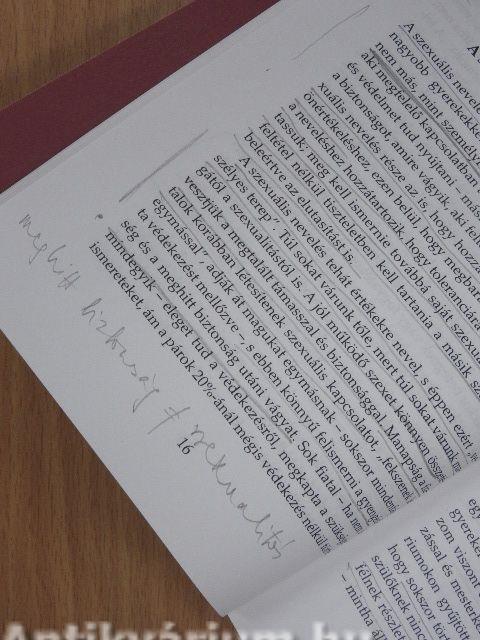 A
A szexuális nevelé
nagyobb gyerekekke
nem más, mint személy
aki megfelelő kapcsolatban
és védelmet tud nyújtani – más
a biztonságot, amire vágyik, aki fel
xuális nevelés része az is, hogy hozzá
önértékeléshez, ezen belül, hogy megbar
a neveléshez hozzátartozik, hogy toleranciára
tassuk: meg kell ismernie továbbá saját szexu
feltétel nélkül tiszteletben kell tartania a másik sz
beleértve az elutasítást is.
A szexuális nevelés tehát értékekre nevel, s éppen ezért „ve
szélyes terep”. Túl sokat várunk tőle, mert túl sokat várunk
gától a szexualitástól is. A jól működő szexet könnyen össze
vesztjük a megtalált támasszal és biztonsággal. Manapság a fia
talok korábban létesítenek szexuális kapcsolatot, „fekszenek
egymással”, adják át magukat egymásnak – sokszor mindenfa
ta védekezést mellőzve –, s ebben könnyű felismerni a gyengéd
ség és a meghitt biztonság utáni vágyat. Sok fiatal – ha nem
mindegyik – eleget tud a védekezésről, megkapta a szüksé
ismereteket, ám a párok 20%-ánál mégis védekezés nélkül
16
meghitt biztonság ≠ szexualitás
eg
gyereke
zom viszont
zással és mester
riumokon gyűjtött
hogy sokszor tör
szülőknek nin
félnek részle
– mintha al
Antikvárium.hu